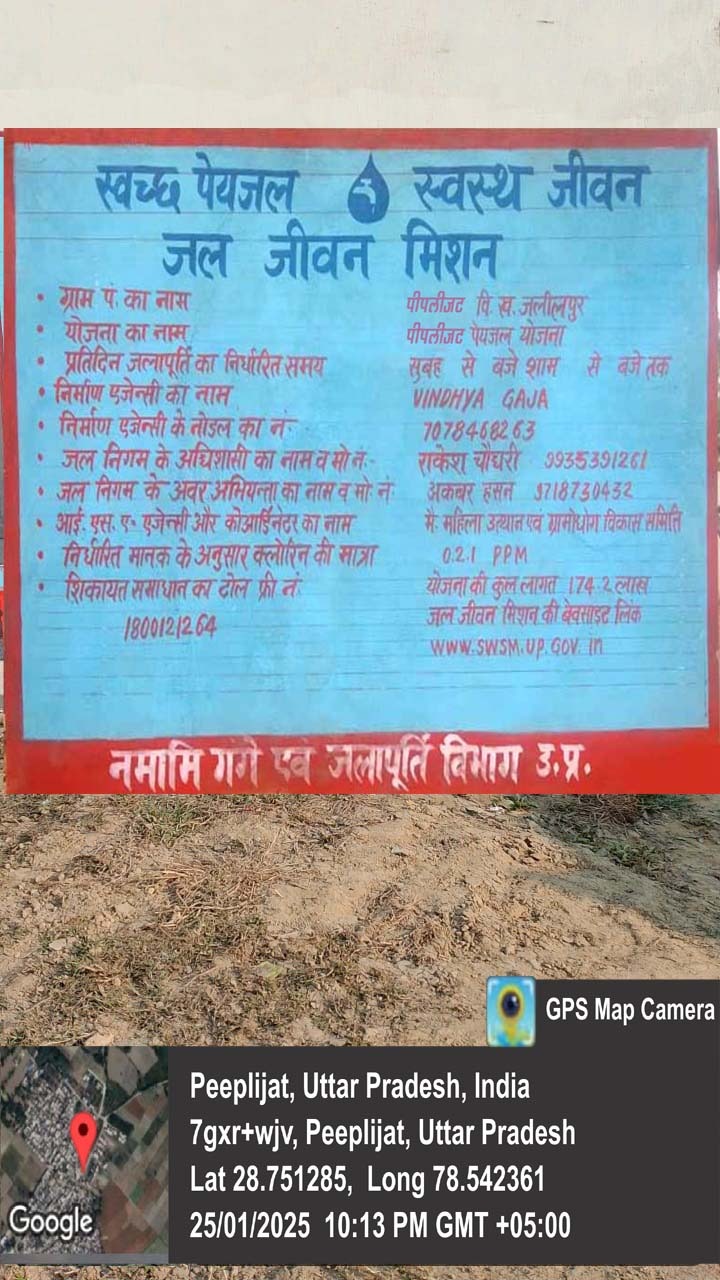 स्वच्छ पेयजल स्वस्थ जीवन
जल जीवन मिशन
• ग्राम पं. का नास पीपलीजट वि. ख. जलीलपुर
• योजना का नाम पीपलीजट पेयजल योजना
• प्रतिदिन जलापूर्ति का निर्धारित समय सुबह से बजे शाम से बजे तक
• निर्माण एजेन्सी का नाम VINDHYA GAJA
• निर्माण एजेन्सी के नोडल का नं- 7078468263
• जल निगम के अधिशासी का नाम व मो नं- राकेश चौधरी 9935391261
• जल निगम के अवर अभियन्ता का नाम व मो. नं अकबर हसन 9718730432
• आई. एस. ए- एजेन्सी और कोआर्डिनेटर का नाम मै. महिला उत्थान एवं ग्रामोधोग विकास समिति
• निर्धारित मानक के अनुसार क्लोरिन की मात्रा 0.21 PPM
• शिकायत समाधान का टोल फ्री नं. योजना की कुल लागत 174.2 लाख
1800121264 जल जीवन मिशन की बेवसाइट लिंक
WWW.SWSM.UP.GOV.in
नमामि गंगे एवं जलापूर्ति विभाग उ.प्र.
GPS Map Camera
Peeplijat, Uttar Pradesh, India
7gxr+wjv, Peeplijat, Uttar Pradesh
Lat 28.751285, Long 78.542361
25/01/2025 10:13 PM GMT +05:00
Google